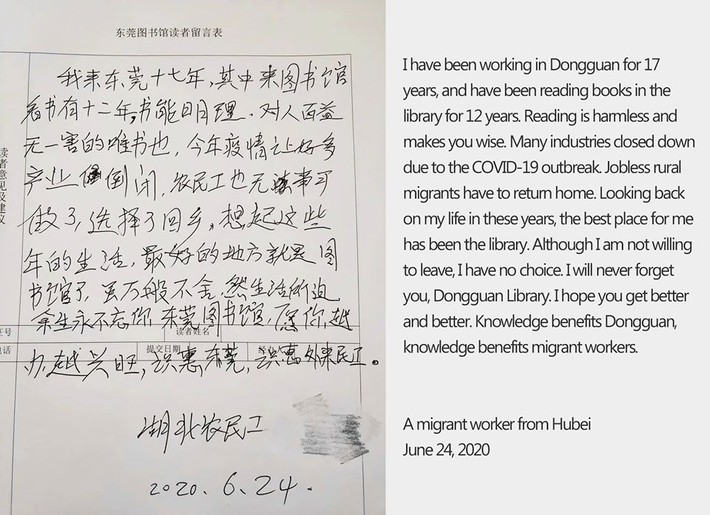 东莞图书馆读者留言表
我来东莞十七年,其中来图书馆
看书有十二年,书能明理,对人百益
无一害的唯书也,今年疫情让好多
产业倒闭,农民工也无事可
做了,选择了回乡,想起这些
年的生活,最好的地方就是图
书馆了,虽万般不舍,然生活所迫
余生永不忘你,东莞图书馆,愿你越
办越兴旺,识惠东莞,识惠外来民工。
湖北农民工
2020.6.24.
读者意见及建议
证号
读者姓名
电话
提交日期
I have been working in Dongguan for 17
years, and have been reading books in the
library for 12 years. Reading is harmless and
makes you wise. Many industries closed down
due to the COVID-19 outbreak. Jobless rural
migrants have to return home. Looking back
on my life in these years, the best place for me
has been the library. Although I am not willing
to leave, I have no choice. I will never forget
you, Dongguan Library. I hope you get better
and better. Knowledge benefits Dongguan,
knowledge benefits migrant workers.
A migrant worker from Hubei
June 24, 2020